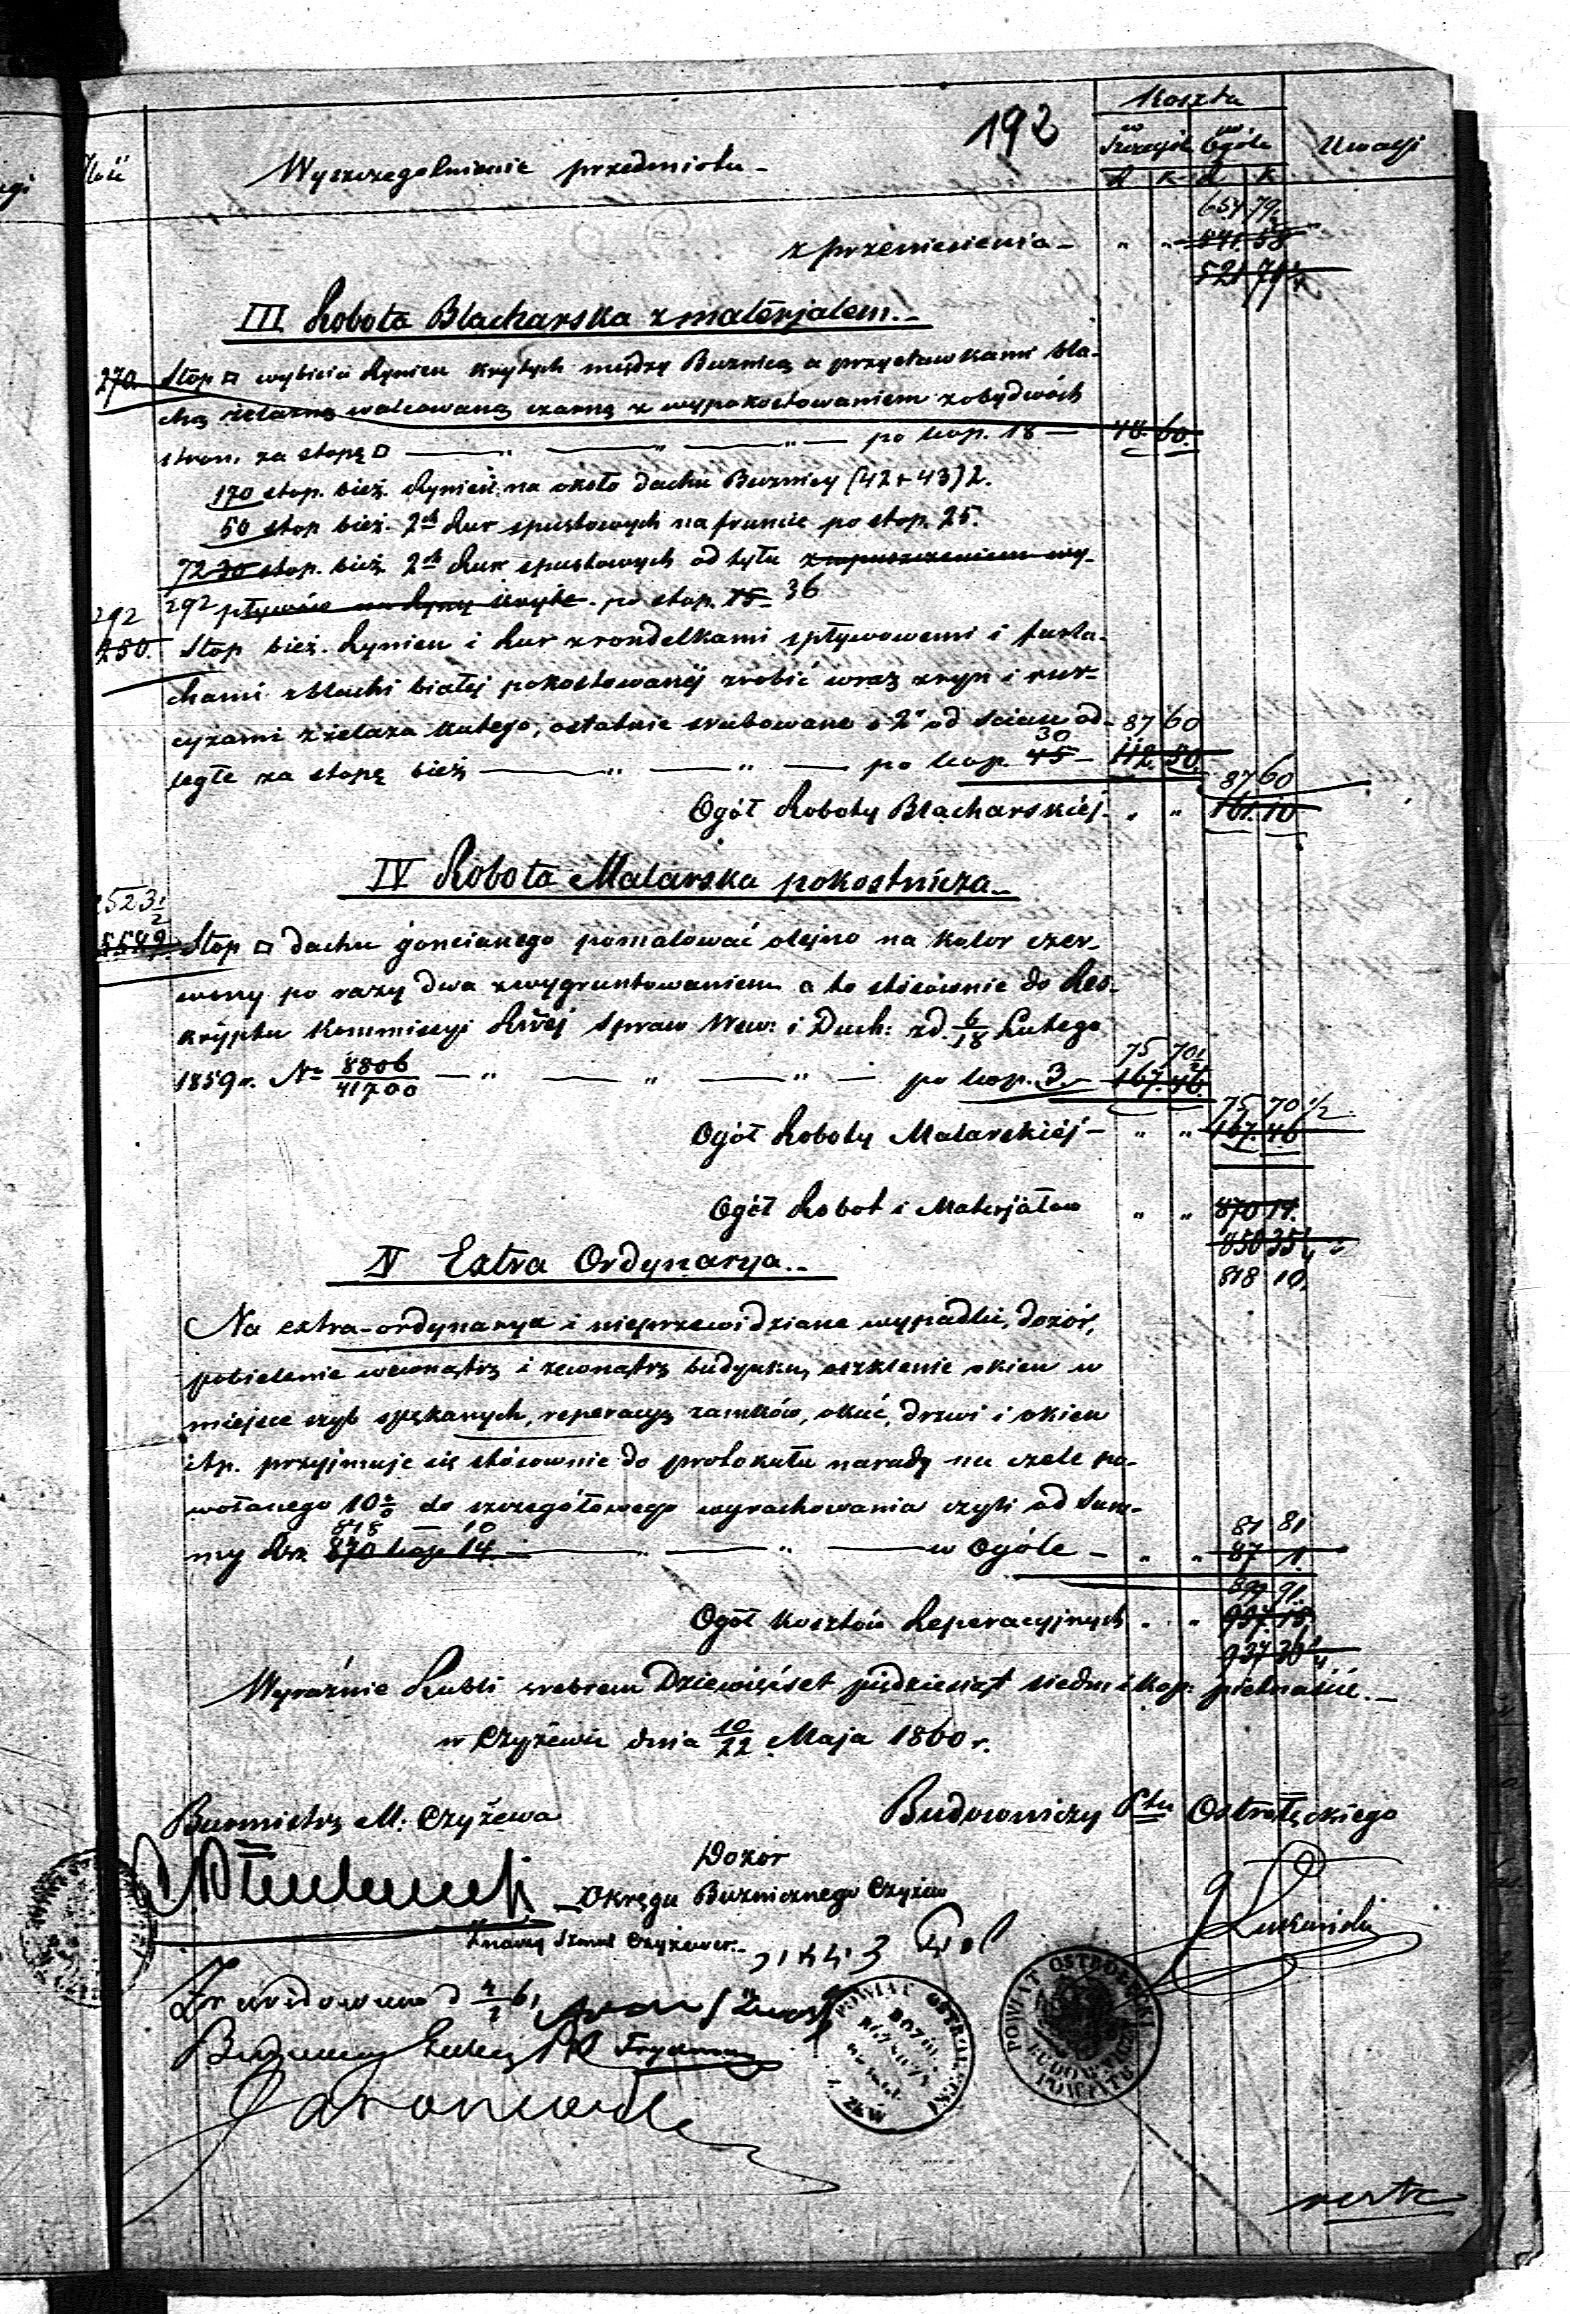 192
Koszta
Ilość Wyszczególnienie przedmiotu w Szczególe w Ogóle Uwagi
R K R K
654 79 1/2
z przeniesienia " " 541. 58
521 71 1/2
III Robota Blacharska z materjałem.
270. Stop □ wybicia Rynien krytych między Buznicą a przystawkami bla-
chą żelazną walcowaną czarną z wypokostowaniem z obydwóch
stron. za stopę □ — " — " — po kop. 18 — 48. 60.
170 stop. bież. Rynien na około dachu Buznicy (42+43)2.
50 stop bież. 2ch Rur spustowych na froncie po stop. 25.
72 30 stop. bież. 2ch Rur spustowych od tyłu z wpuszczeniem wy-
292 292 pływów na Rynny kryte. po stop. 15 36
250. Stop bież. Rynien i Rur z rondelkami spływowemi i
z blachi białej pokostowanej zrobić wraz z ryn i rur-
z żelaza kutego, ostatnie szrubowane o 2" od ścian od- 87 60
30
ległe za stopę bież — " — " — po kop. 45 — 112 50.
87 60
Ogół Roboty Blacharskiej. " " 161. 10
IV Robota Malarska pokostnicza
2523 1/2
5582 Stop □ dachu goncianego pomalować olejno na kolor czer-
wony po razy dwa z wygruntowaniem a to stósownie do Res-
kryptu Kommissyi Rz̃ej Spraw Wew: i Duch: z d. 6/18 Lutego
75 70 1/2
1859 r. No 8806/41700 — " — " — " — po kop. 3 — 167. 46.
75 70 1/2
Ogół Roboty Malarskiej — " " 167. 46
Ogół Robot i Materjałow " " 870 14.
850 35 1/4
818 10.
V Extra Ordynarya..
Na extra-ordynarya i nieprzewidziane wypadki, dozór,
pobielenie wewnątrz i zewnątrz budynku, oszklenie okien w
miejsce szyb spękanych, reperacyą zamków, okuć, drzwi i okien
itp. przyjmuje się stósownie do protokułu narady na czele po-
wołanego 10% do szczegółowego wyrachowania czyli od Sum-
818 — 10 81 81
my Rsr. 870 kop 14. — " — " — w Ogóle — " " 87 1.
899 91.
Ogół Kosztów Reperacyjnych " " 957. 15.
937 36 1/4
Wyraźnie Rubli srebrem Dziewięćset piędziesiąt siedm i Kop: pietnaście. —
w Czyżewie dnia 10/22 Maja 1860 r.
Burmistrz M: Czyżewa Budowniczy Ptu Ostrołęckiego
Dozór
Okręgu Buzniczego Czyżew
Szmul Czyżewer
Zrewidowano
Budowniczy
POWIAT OSTROŁĘCKI
POWIAT OSTROŁĘCKI
BUDOWNICZY
POWIATU
verte